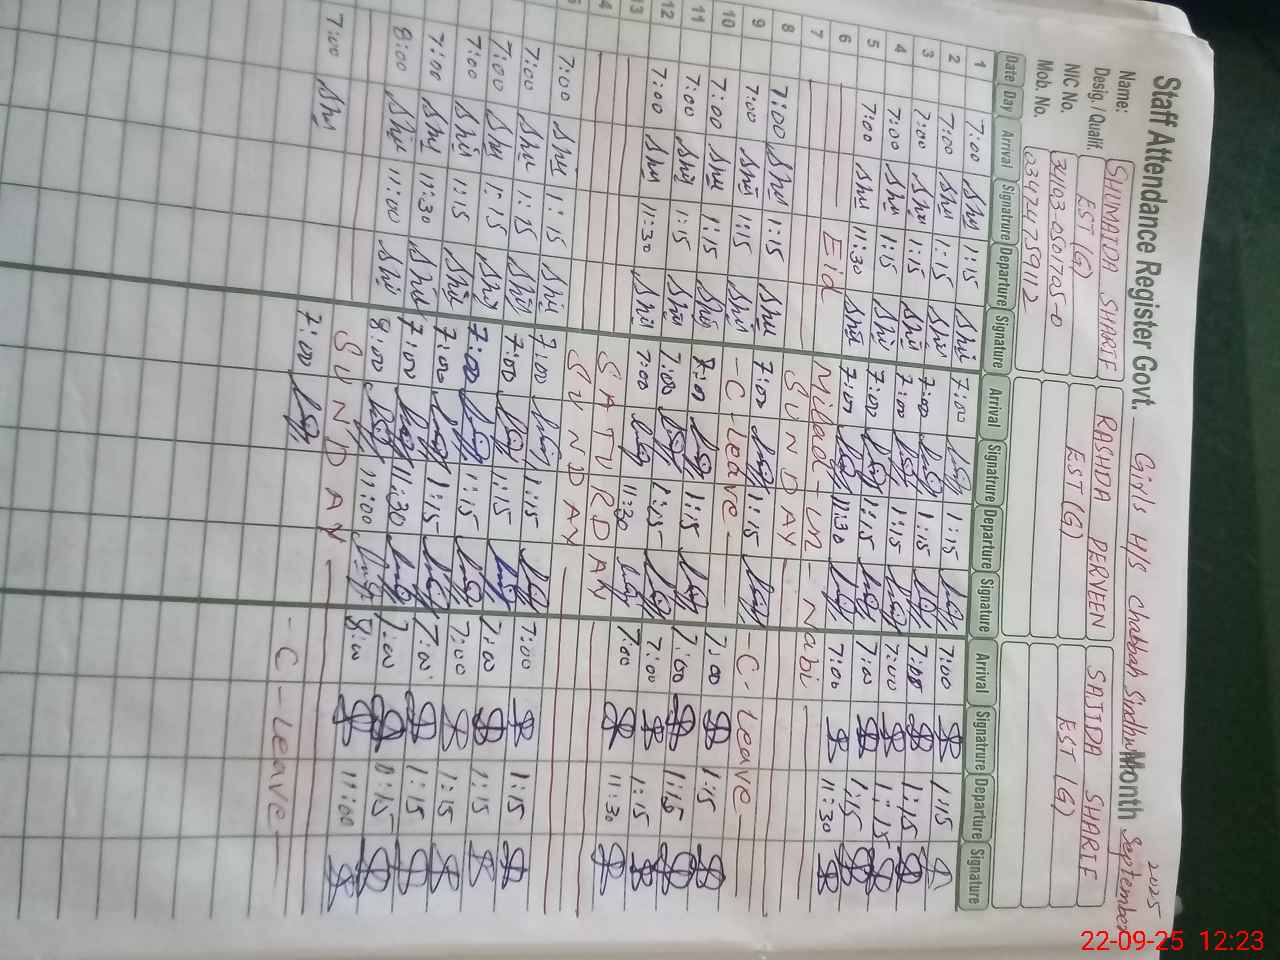 Staff Attendance Register Govt. Girls H/S Chabbah Sindhwan Month September 2025
Name: SHUMAIDA SHARIF RASHDA PERVEEN SAJIDA SHARIF
Desig. / Qualif. EST (G) EST (G) EST (G)
NIC No. 34103-0501705-0
Mob. No. 03474759112
Date Day Arrival Signatrure Departure Signature Arrival Signatrure Departure Signature Arrival Signatrure Departure Signature
1 7:00 1:15 7:00 1:15 7:00 1:15
2 7:00 1:15 7:00 1:15 7:00 1:15
3 7:00 1:15 7:00 1:15 7:00 1:15
4 7:00 1:15 7:00 1:15 7:00 1:15
5 7:00 11:30 7:00 11:30 7:00 11:30
6 Eid Milad-un-Nabi
7 SUNDAY
8 7:00 1:15 7:00 1:15 -C-Leave-
9 7:00 1:15 -C-Leave- 7:00 1:15
10 7:00 1:15 7:00 1:15 7:00 1:15
11 7:00 1:15 7:00 1:15 7:00 1:15
12 7:00 11:30 7:00 11:30 7:00 11:30
13 SATURDAY
14 SUNDAY
7:00 1:15 7:00 1:15 7:00 1:15
7:00 1:15 7:00 1:15 7:00 1:15
7:00 1:15 7:00 1:15 7:00 1:15
7:00 1:15 7:00 1:15 7:00 1:15
7:00 11:30 7:00 11:30 7:00
8:00 11:00 8:00 11:00 8:00 11:00
SUNDAY
7:00 7:00 -C-Leave-
22-09-25 12:23